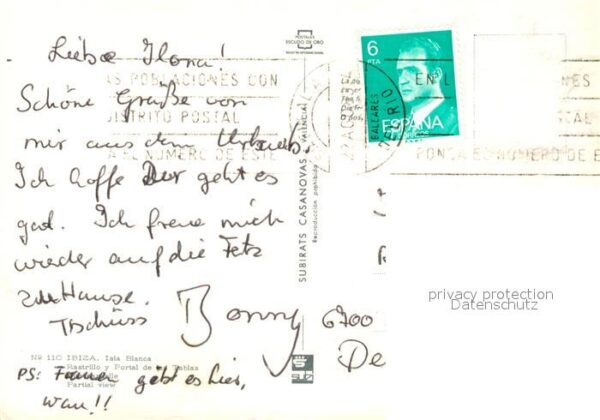 POSTALES
ESCUDO DE ORO
Liebe Ilona!
Schöne Grüße von
mir aus dem Urlaub.
Ich hoffe Dir geht es
gut. Ich freue mich
wieder auf die Fetz
zuHause.
Tschüss Bonny
Nº 110 IBIZA. Isla Blanca
Rastrillo y Portal de las Tablas
Partial view
PS: Frauen gibt es hier,
wau!!
SUBIRATS CASANOVAS - VALENCIA
Reproducción prohibida
AS POBLACIONES CON
DISTRITO POSTAL
A EL NUMERO DE ESTE
BALEARES
6
PTA
ESPAÑA
EN L
PONGA EL NUMERO DE E
6700
De
privacy protection
Datenschutz